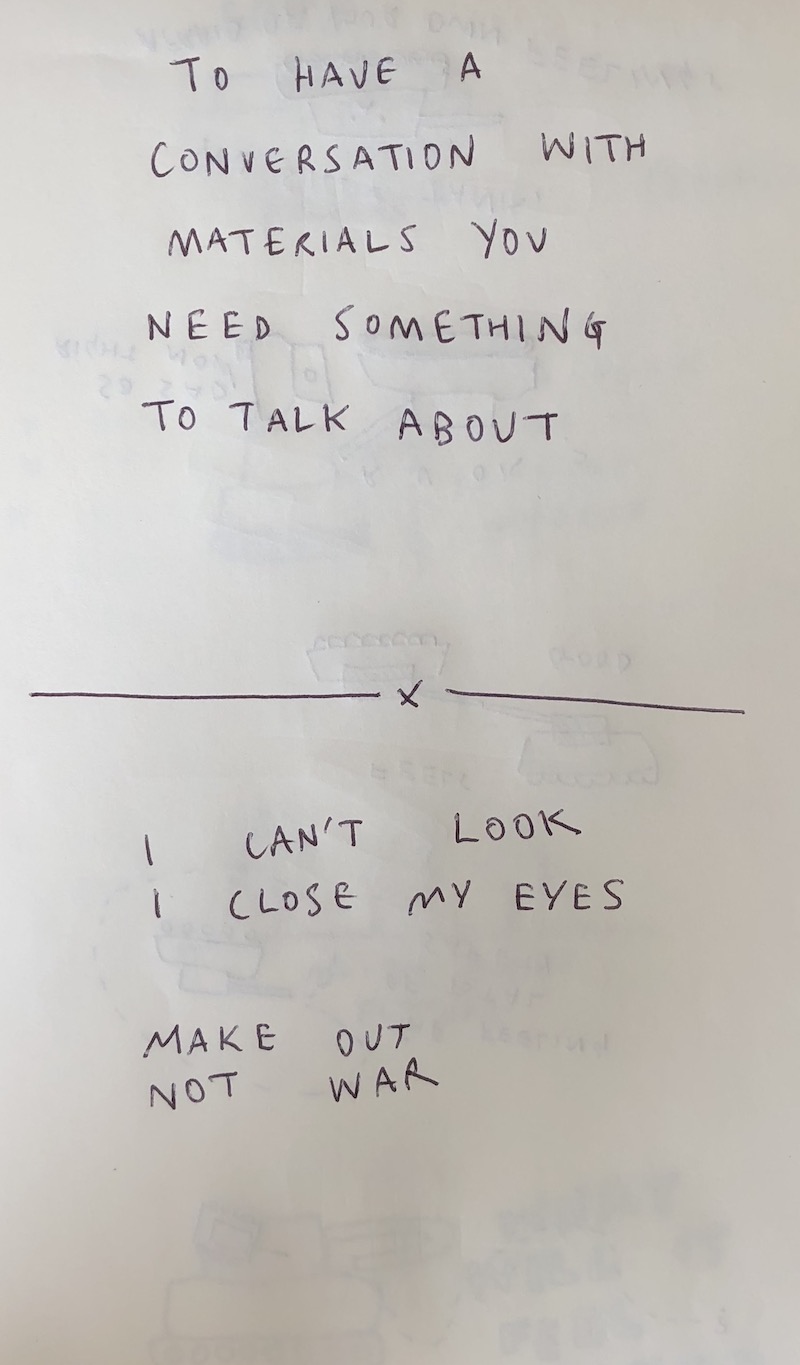 TO HAVE A
CONVERSATION WITH
MATERIALS YOU
NEED SOMETHING
TO TALK ABOUT
X
I CAN'T LOOK
I CLOSE MY EYES
MAKE OUT
NOT WAR